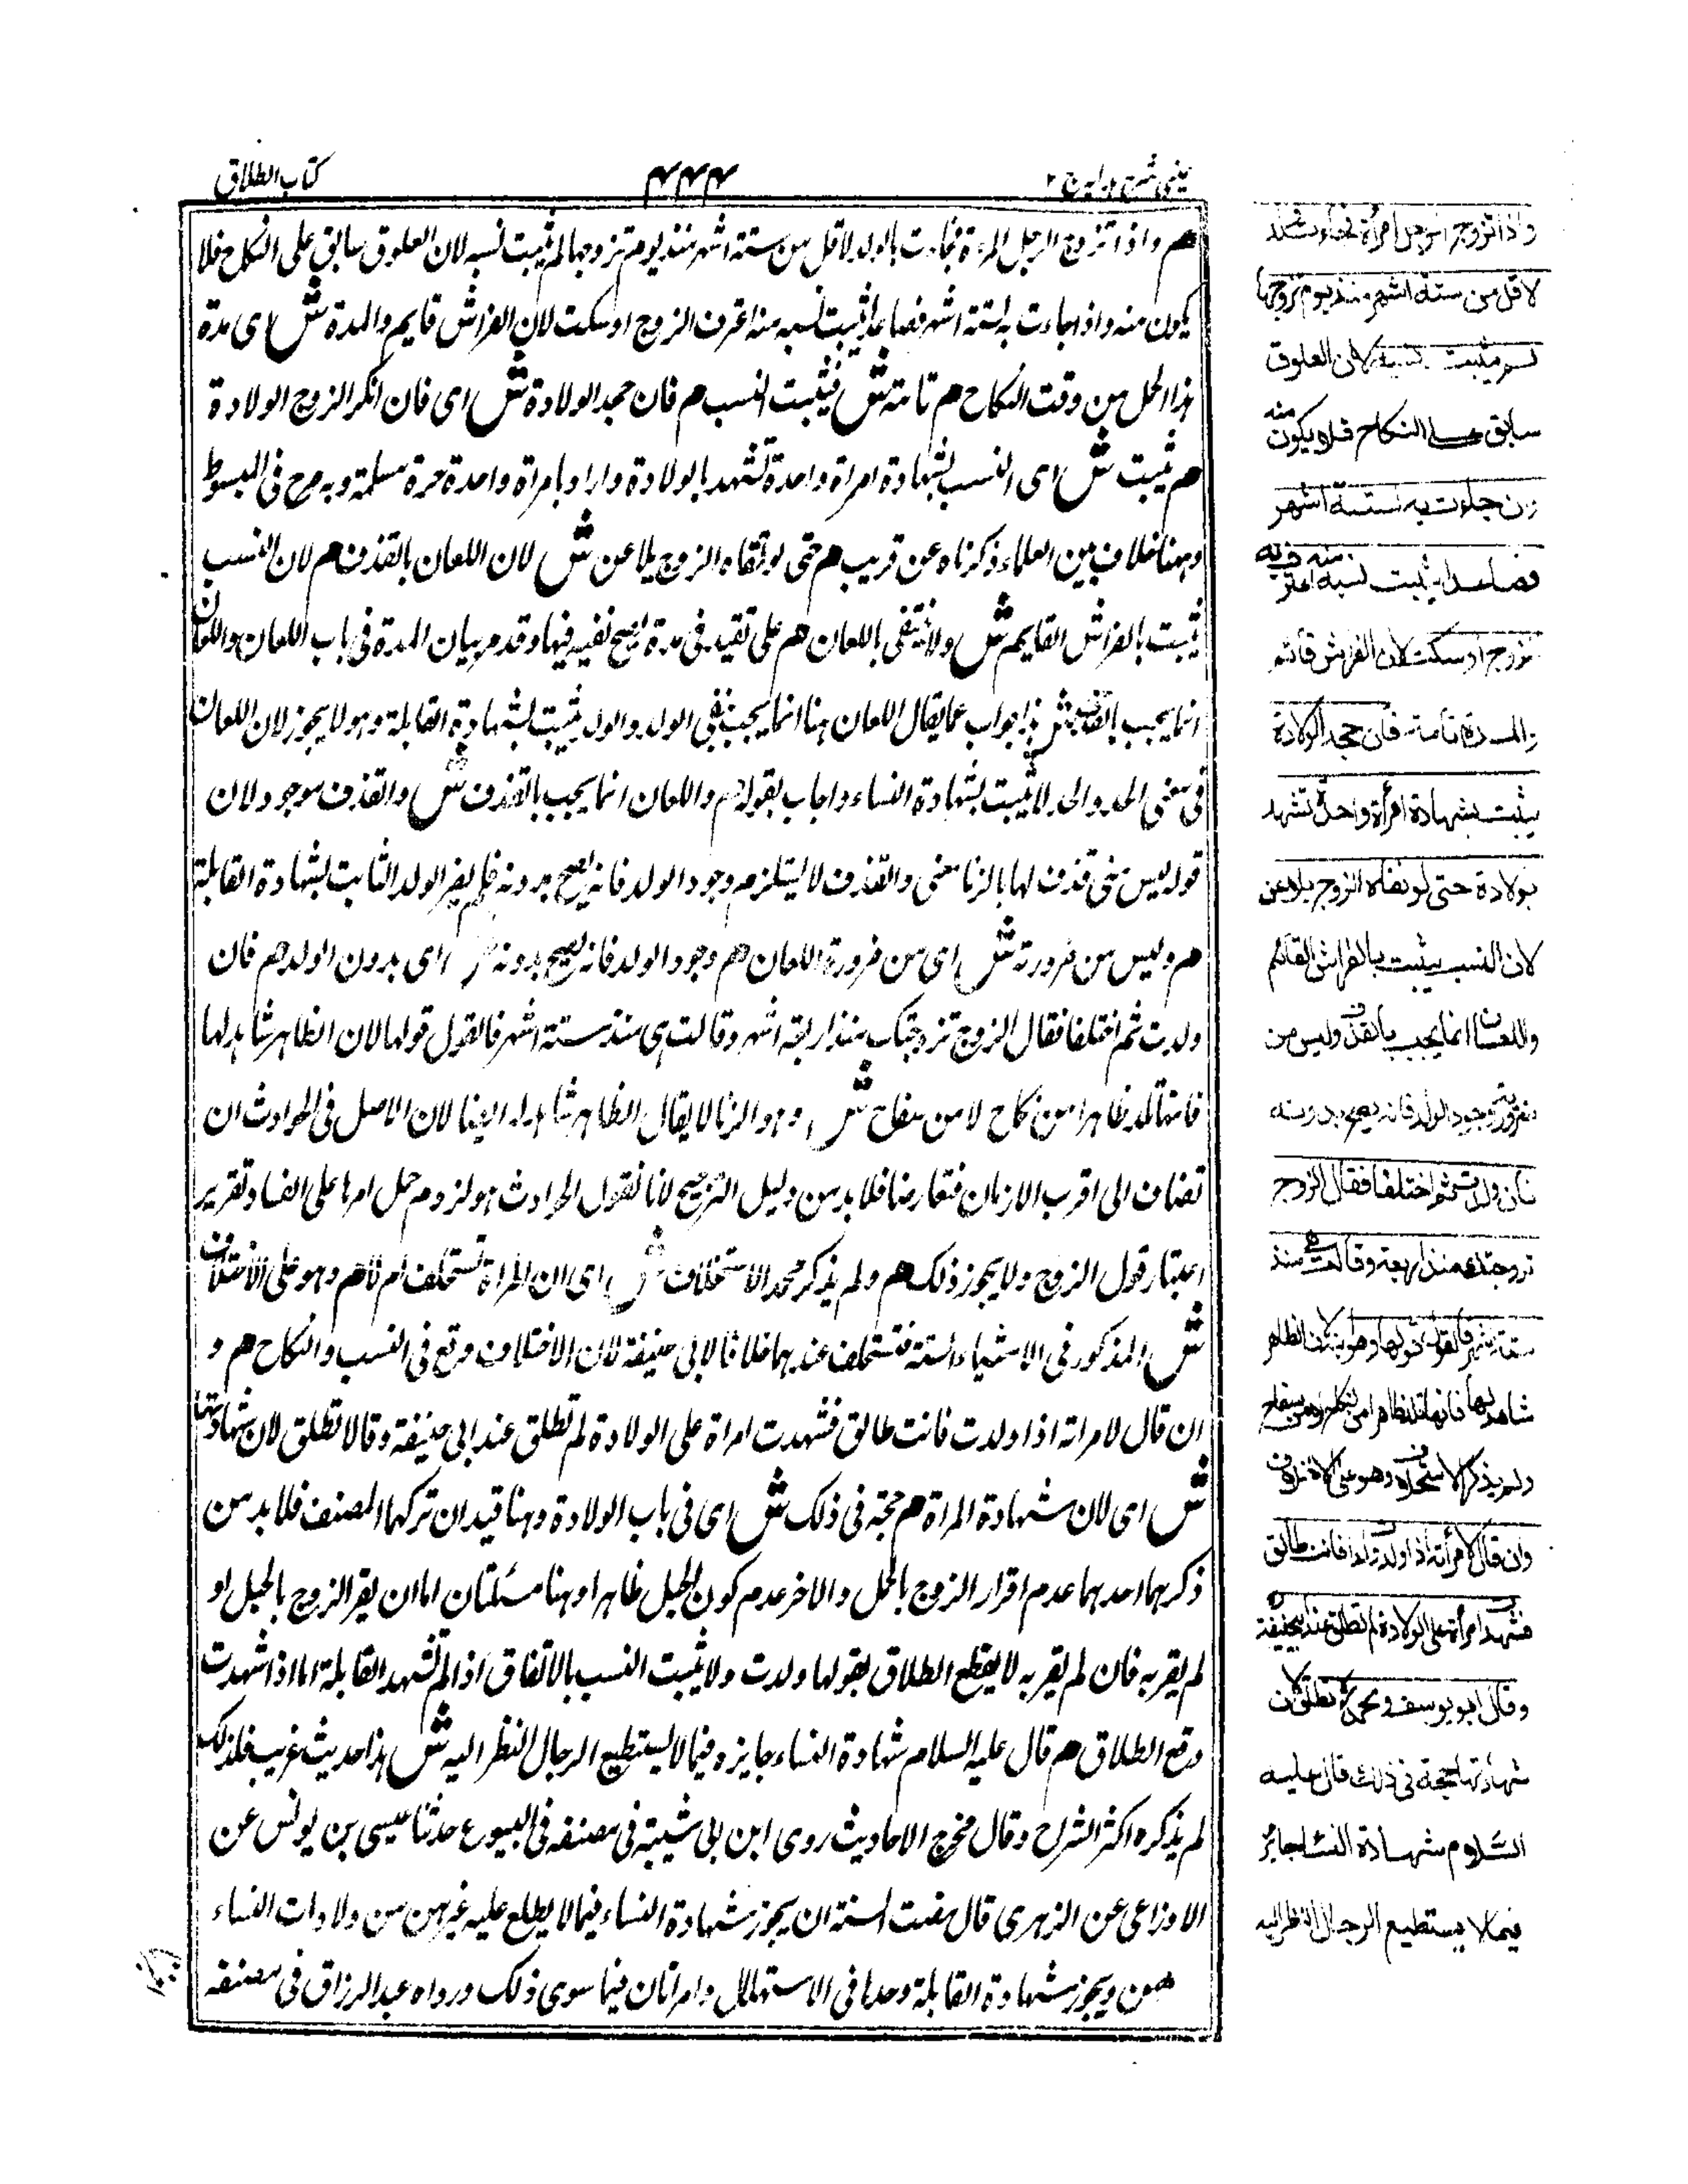 كتاب الطلاق
۴۴۴
عينى شرح هدايه ج ٢
هم واذا تزوج الرجل امرأة فجاءت بالولد لاقل من ستة اشهر منذ يوم تزوجها لم يثبت نسبه لان العلوق سابق على النكاح فلا
يكون منه واذا جاءت به لستة اشهر فصاعدا يثبت نسبه منه اعترف الزوج او سكت لان الفراش قايم والمدة ش اى مدة
هذا الحمل من وقت النكاح هم تامة ش فيثبت النسب م فان جحد الولادة ش اى فان انكر الزوج الولادة
هم يثبت ش اى النسب بشهادة امراة واحدة تشهد بالولادة واراد بامراة واحدة حرة مسلمة وبه صرح فى المبسوط
وههنا خلاف بين العلماء ذكرناه عن قريب هم حتى لو نفاه الزوج يلاعن ش لان اللعان بالقذف هم لان النسب
يثبت بالفراش القايم ش ولا ينتفى باللعان هم على تقيد فى مدة يصح نفيه فيها وقد مر بيان المدة فى باب اللعان واللعان
انما يجب بالقذف ش هذا جواب عما يقال اللعان هنا انما يجب بنفى الولد والولد يثبت بشهادة القابلة وهو لا يجوز لان اللعان
فى معنى الحد والحد لا يثبت بشهادة النساء واجاب بقوله هم واللعان انما يجب بالقذف ش والقذف موجود لان
قوله ليس منى قذف لها بالزنا معنى والقذف لا يستلزم وجود الولد فانه يصح بدونه فلم يعتبر الولد الثابت بشهادة القابلة
هم وليس من ضرورته ش اى من ضرورة اللعان هم وجود الولد فانه يصح بدونه ش اى بدون الولد هم فان
ولدت ثم اختلفا فقال الزوج تزوجتك منذ اربعة اشهر وقالت هى منذ ستة اشهر فالقول قولها لان الظاهر شاهد لها
فانها تلد ظاهرا من نكاح لا من سفاح ش وهو الزنا لا يقال الظاهر شاهد له ايضا لان الاصل فى الحوادث ان
تضاف الى اقرب الازمان فتعارضا فلا بد من دليل الترجيح لانا نقول الحوادث هو لزوم حمل امرها على الفساد وتقرير
اعتبار قول الزوج ولا يجوز ذلك هم ولم يذكر محمد الاستحلاف ش اى ان المراة تستحلف ام لا هم وهو على الاختلاف
ش المذكور فى الاشياء الستة فتستحلف عندهما خلافا لابى حنيفة لان الاختلاف وقع فى النسب والنكاح هم و
ان قال لامراته اذا ولدت فانت طالق فشهدت امراة على الولادة لم تطلق عند ابى حنيفة وقالا تطلق لان شهادتها
ش اى لان شهادة المراة هم حجة فى ذلك ش اى فى باب الولادة وهنا قيدان تركهما المصنف فلا بد من
ذكرهما احدهما عدم اقرار الزوج بالحمل والاخر عدم كون الحبل ظاهرا وهنا مسئلتان اما ان يقر الزوج بالحبل او
لم يقر به فان لم يقر به لا يقطع الطلاق بقولها ولدت ولا يثبت النسب بالاتفاق اذا لم تشهد القابلة اما اذا شهدت
وقع الطلاق هم قال عليه السلام شهادة النساء جايزة فيما لا يستطيع الرجال النظر اليه ش هذا حديث غريب فلذلك
لم يذكره اكثر الشراح وقال مخرج الاحاديث روى ابن ابى شيبة فى مصنفه فى البيوع حدثنا عيسى بن يونس عن
الاوزاعى عن الزهرى قال مضت السنة ان يجوز شهادة النساء فيما لا يطلع عليه غيرهن من ولادات النساء
وعيوبهن ويجوز شهادة القابلة وحدها فى الاستهلال وامراتان فيما سوى ذلك ورواه عبد الرزاق فى مصنفه
واذا تزوج الرجل امرأة فجاءت بولد
لاقل من ستة اشهر منذ يوم تزوجها
لم يثبت نسبه لان العلوق
سابق على النكاح فلا يكون منه
وان جاءت به لستة اشهر
فصاعدا يثبت نسبه منه اعترف به
الزوج او سكت لان الفراش قائم
والمدة تامة فان جحد الولادة
يثبت بشهادة امرأة واحدة تشهد
بولادة حتى لو نفاه الزوج يلاعن
لان النسب يثبت بالفراش القائم
واللعان انما يجب بالقذف وليس من
ضرورته وجود الولد فانه يصح بدونه
فان ولدت ثم اختلفا فقال الزوج
تزوجتك منذ اربعة وقالت هى منذ
ستة اشهر فالقول قولها وهو ابنه لان الظاهر
شاهد لها فانها تلد ظاهرا من نكاح لا من سفاح
ولم يذكر الاستحلاف وهو على الاختلاف
وان قال لامرأته اذا ولدت ولدا فانت طالق
فشهدت امرأة على الولادة لم تطلق عند ابى حنيفة
وقال ابو يوسف ومحمد تطلق لان
شهادتها حجة فى ذلك قال عليه
السلام شهادة النساء جائز
فيما لا يستطيع الرجال النظر اليه